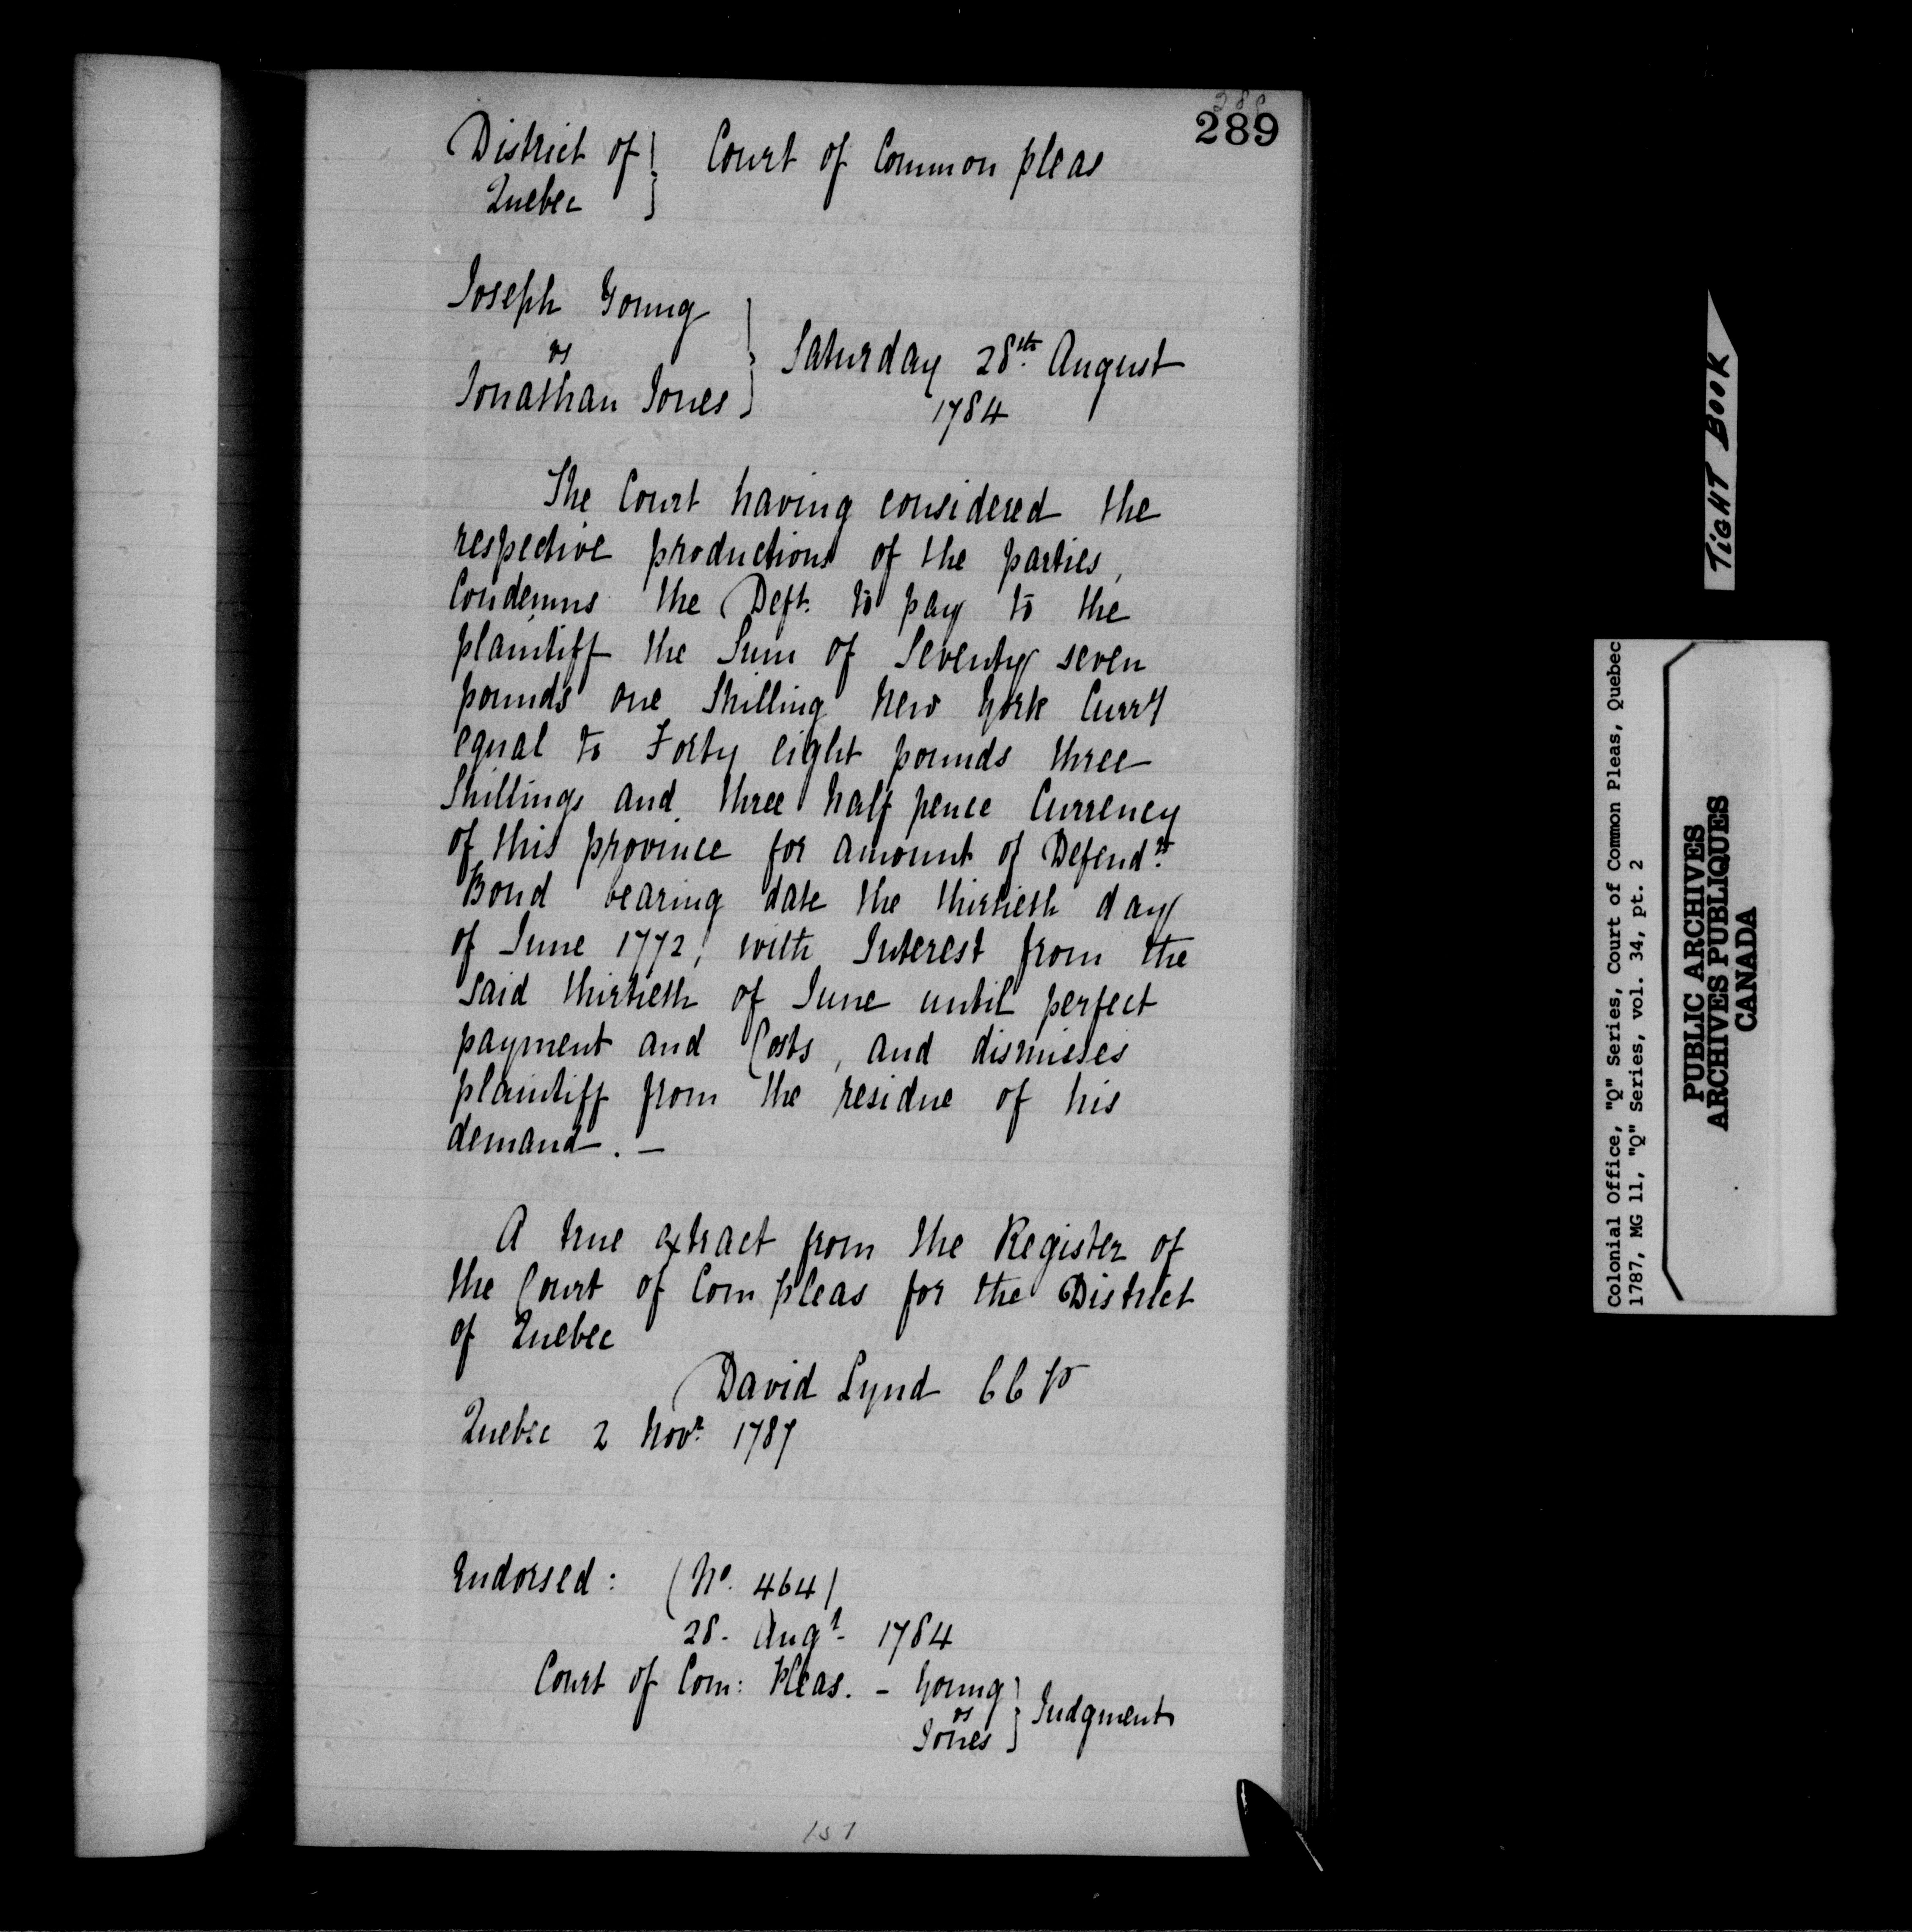 288
289
District of } Court of Common pleas
Quebec
Joseph Young
vs
Jonathan Jones } Saturday 28th. August
1784
The Court having considered the
respective productions of the parties,
Condemns the Deft. to pay to the
plaintiff the Sum of Seventy seven
pounds one Shilling New York Curry
equal to Forty eight pounds three
Shillings and three half pence Currency
of this province for amount of Defendts.
Bond bearing date the thirtieth day
of June 1772, with Interest from the
said thirtieth of June until perfect
payment and Costs, and dismisses
plaintiff from the residue of his
demand. —
A true extract from the Register of
the Court of Com pleas for the District
of Quebec
David Lynd
Quebec 2 Novr. 1787
Endorsed: (No. 464)
28. Augt. 1784
Court of Com: Pleas. - Young
vs } Judgment
Jones
151
TIGHT BOOK
Colonial Office, "Q" Series, Court of Common Pleas, Quebec
1787, MG 11, "Q" Series, vol. 34, pt. 2
PUBLIC ARCHIVES
ARCHIVES PUBLIQUES
CANADA